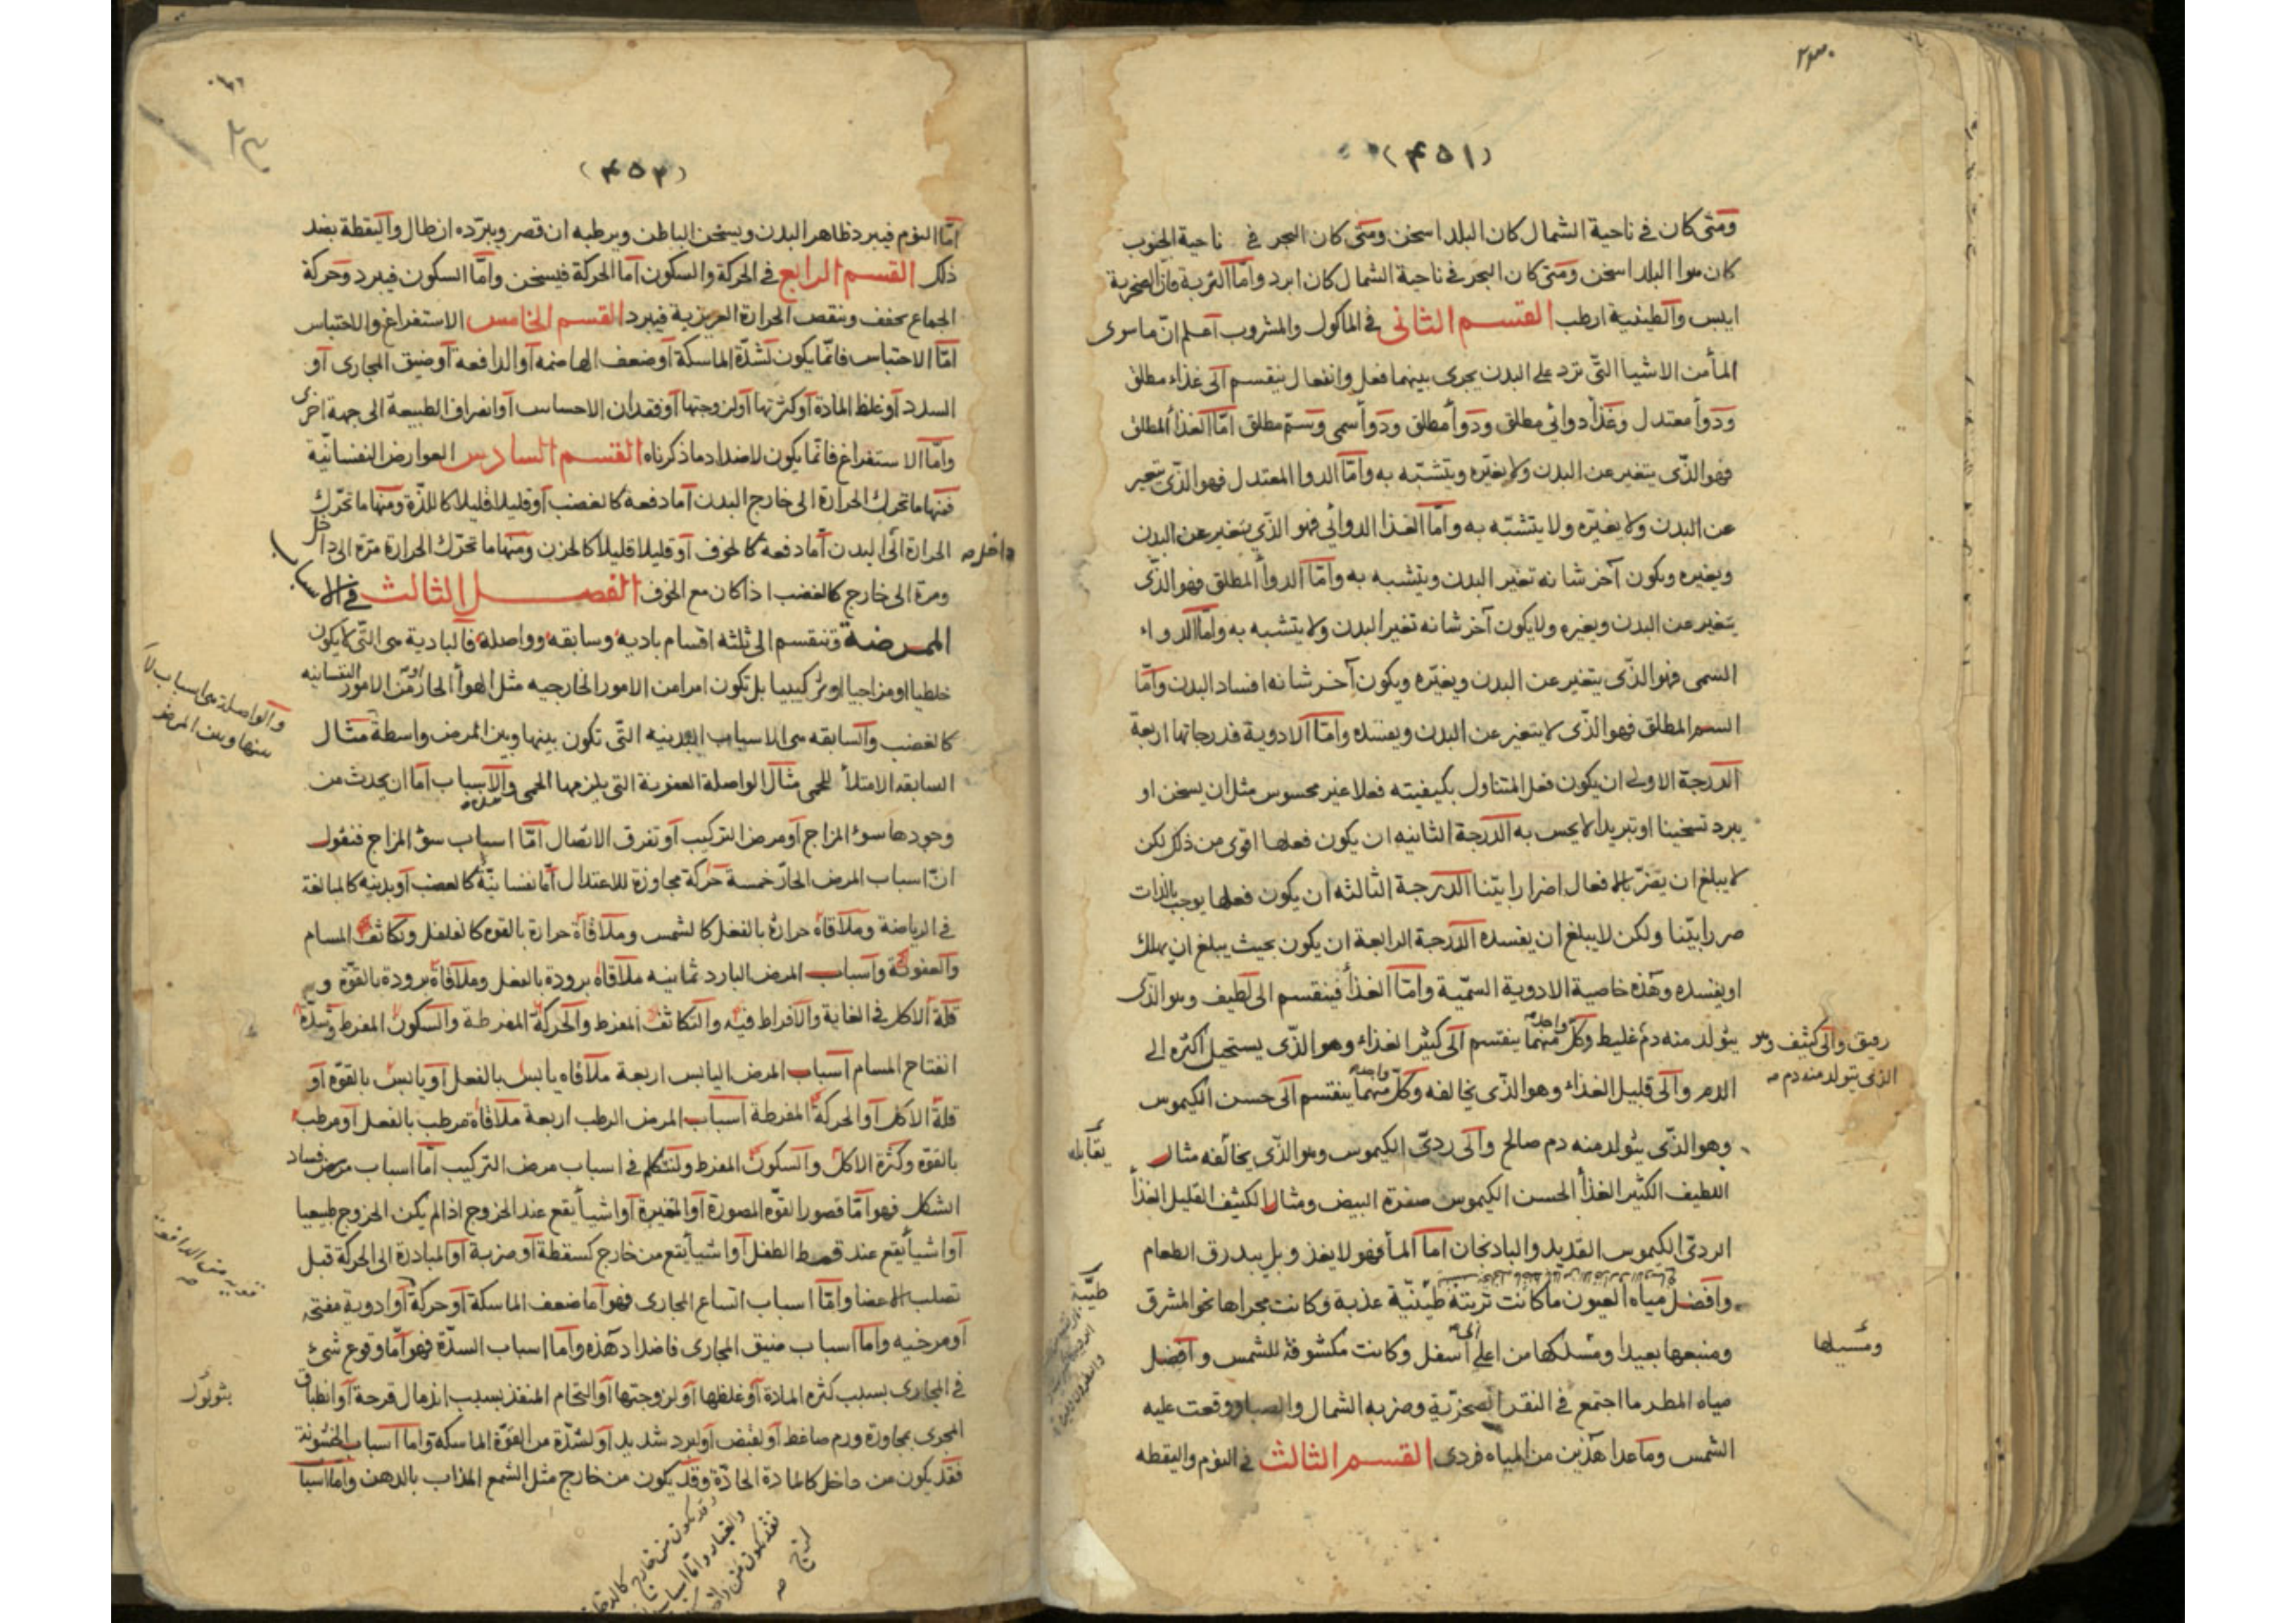 (٤٥١)
ومتى كان فى ناحية الشمال كان البلد اسخن ومتى كان البحر فى ناحية الجنوب
كان هوا البلد اسخن ومتى كان البحر فى ناحية الشمال كان ابرد وامّا التربة فانّ الصخرية
ايبس والطينية ارطب القسم الثانى فى الماكول والمشروب اعلم انّ ما سوى
المأ من الاشيا التّى ترد على البدن يجرى بينهما فعل وانفعال ينقسم الى غذاء مطلق
ودوأ معتدل وغذأ دوائى مطلق ودوأ مطلق ودوأ سمى وسمّ مطلق امّا الغذأ المطلق
فهو الذّى يتغير عن البدن ولا يغيّره ويتشبّه به وامّا الدوا المعتدل فهو الذّى يتغير
عن البدن ولا يغيّره ولا يتشبّه به وامّا الغذا الدوائى فهو الذّى يتغير عن البدن
ويغيره ويكون آخر شانه تغيّر البدن ويتشبه به وامّا الدوأ المطلق فهو الذّى
يتغير عن البدن ويغيره ولا يكون آخر شانه تغير البدن ولا يتشبه به وامّا الدواء
السّمى فهو الذّى يتغير عن البدن ويغيّره ويكون آخر شانه افساد البدن وامّا
السم المطلق فهو الذّى لا يتغير عن البدن ويفسده وامّا الادوية فدرجاتها اربعة
الدرجة الاولى ان يكون فعل المتناول بكيفيته فعلا غير محسوس مثل ان يسخن او
يبرد تسخينا او تبريدا لا يحس به الدرجة الثانيه ان يكون فعلها اقوى من ذلك لكن
لا يبلغ ان يضرّ بالافعال اضرارا بيّنا الدرجة الثالثه ان يكون فعلها يوجب بالذات
ضررا بيّنا ولكن لا يبلغ ان يفسده الدرجة الرابعة ان يكون بحيث يبلغ ان يهلك
او يفسده وهذه خاصية الادوية السمّية وامّا الغذأ فينقسم الى لطيف وهو الذّى
يتولد منه دم غليظ وكلّ واحد منهما ينقسم الى كثير الغذاء وهو الذّى يستحيل اكثره الى
رقيق والى كثيف وهو
الذى يتولد منه دم صه
الدم والى قليل الغذاء وهو الذّى يخالفه وكلّ واحد منهما ينقسم الى حسن الكيموس
وهو الذّى يتولد منه دم صالح والى ردىّ الكيموس وهو الذّى يخالفه مثال
يقابله
اللطيف الكثير الغذأ الحسن الكيموس صفرة البيض ومثال الكثيف القليل الغذأ
الردىّ الكيموس القديد والبادنجان امّا المأ فهو لا يغذو بل يبدرق الطعام
وافضل مياه العيون ما كانت تربته طينّية عذبة وكانت مجراها نحو المشرق
طيّبة
ومنبعها بعيدا ومسلكها من اعلى الى اسفل وكانت مكشوفة للشمس وافضل
ومسيلها
مياه المطر ما اجتمع فى النقر الصخريّة وضربه الشمال والصبا ووقعت عليه
الشمس وما عدا هذين من المياه فردى القسم الثالث فى النوم واليقظه
(٤٥٢)
امّا النوم فيبرد ظاهر البدن ويسخن الباطن ويرطبه ان قصر ويبرّده ان طال واليقظة بضد
ذلك القسم الرابع فى الحركة والسكون امّا الحركة فيسخن وامّا السكون فيبرد وحركة
الجماع يجفف وينقص الحرارة الغريزية فيبرد القسم الخامس الاستفراغ والاحتباس
امّا الاحتباس فانّما يكون لشدّة الماسكة او ضعف الهاضمه او الدافعة او ضيق المجارى او
السدد او غلظ المادة او كثرتها او لزوجتها او فقدان الاحساس او انصراف الطبيعة الى جهة اخرى
وامّا الاستفراغ فانّما يكون لاضداد ما ذكرناه القسم السادس العوارض النفسانيّة
فمنها ما تحرك الحرارة الى خارج البدن امّا دفعة كالغضب او قليلا قليلا كاللذّة ومنها ما تحرّك
الحرارة الى البدن امّا دفعة كالخوف او قليلا قليلا كالحزن ومنها ما تحرّك الحرارة مرّة الى داخل
داخل صه
ومرة الى خارج كالغضب اذا كان مع الخوف الفصل الثالث فى الاسباب
الممرضة وتنقسم الى ثلثه اقسام باديه وسابقه وواصله فالبادية هى التّى لا يكون
خلطيا او مزاجيا او تركيبيا بل تكون امرا من الامور الخارجيه مثل الهوأ الحار او من الامور النفسانيه
كالغضب والسابقه هى الاسباب البدنيه التّى تكون بينها وبين المرض واسطة مثال
والواصلة هى اسباب لا
بينها وبين المرض
السابقه الامتلأ للحمى مثال الواصلة العفونة التى يلزمها الحمى والاسباب امّا ان يحدث من
وجودها سوء المزاج او مرض التركيب او تفرق الاتصال امّا اسباب سوء المزاج فنقول
انّ اسباب المرض الحارّ خمسة حركة مجاوزة للاعتدال امّا نفسانيّة كالغضب او بدنيه كالمبالغة
فى الرياضة وملاقاة حرارة بالفعل كالشمس وملاقاة حرارة بالقوه كالفلفل وتكاثف المسام
والعفونة واسباب المرض البارد ثمانيه ملاقاة برودة بالفعل وملاقاة برودة بالقوّة و
قلة الاكل فى الغاية والافراط فيه والتكاثف المفرط والحركة المفرطة والسكون المفرط وشدّة
انفتاح المسام اسباب المرض اليابس اربعة ملاقاه يابس بالفعل او يابس بالقوّه او
قلة الاكل او الحركة المفرطة اسباب المرض الرطب اربعة ملاقاة مرطب بالفعل او مرطب
بالقوّه وكثرة الاكل والسكون المفرط ولنتكلم فى اسباب مرض التركيب امّا اسباب مرض فساد
الشكل فهو امّا قصور القوّه المصورة او المغيرة او اشيأ يقع عند الخروج اذا لم يكن الخروج طبيعيا
او اشيأ يقع عند قمط الطفل او اشيأ يقع من خارج كسقطة او ضربة او المبادرة الى الحركة قبل
تصلب الاعضا وامّا اسباب اتساع المجارى فهو امّا ضعف الماسكة او حركة او ادوية مفتحه
او مرخيه وامّا اسباب ضيق المجارى فاضداد هذه وامّا اسباب السدّة فهو امّا وقوع شىء
فى المجارى بسبب كثره المادة او غلظها او لزوجتها او التحام المنفذ بسبب اندمال قرحة او انطباق
المجرى بمجاورة ورم ضاغط او لقبض او لبرد شديد او لشدّة من القوّة الماسكة وامّا اسباب الخشونة
فقد يكون من داخل كالمادة الحادّة وقد يكون من خارج مثل الشمع المذاب بالدهن وامّا اسبا
وقد يكون من خارج كالدخان
والغبار وامّا اسباب
فقد يكون من داخل
لزج صه